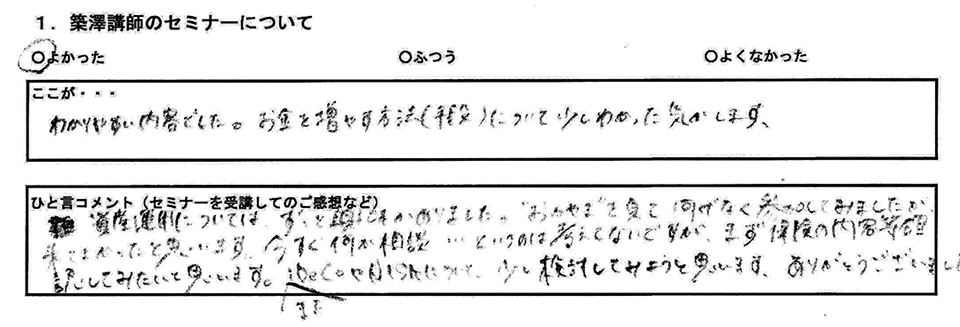 1．築澤講師のセミナーについて
○よかった ○ふつう ○よくなかった
ここが・・・
わかりやすい内容でした。お金を増やす方法(手段)について少しわかった気がします、
ひと言コメント（セミナーを受講してのご感想など）
資産運用については、ずっと頭にはありました。"おかやま"を見て何げなく参加してみましたが、
来てよかったと思います。今すぐ何か相談…というのは考えてないですが、まず保険の内容等確
認してみたいと思います。iDeCoやNISAについて、少し検討してみようと思います、ありがとうございました
また